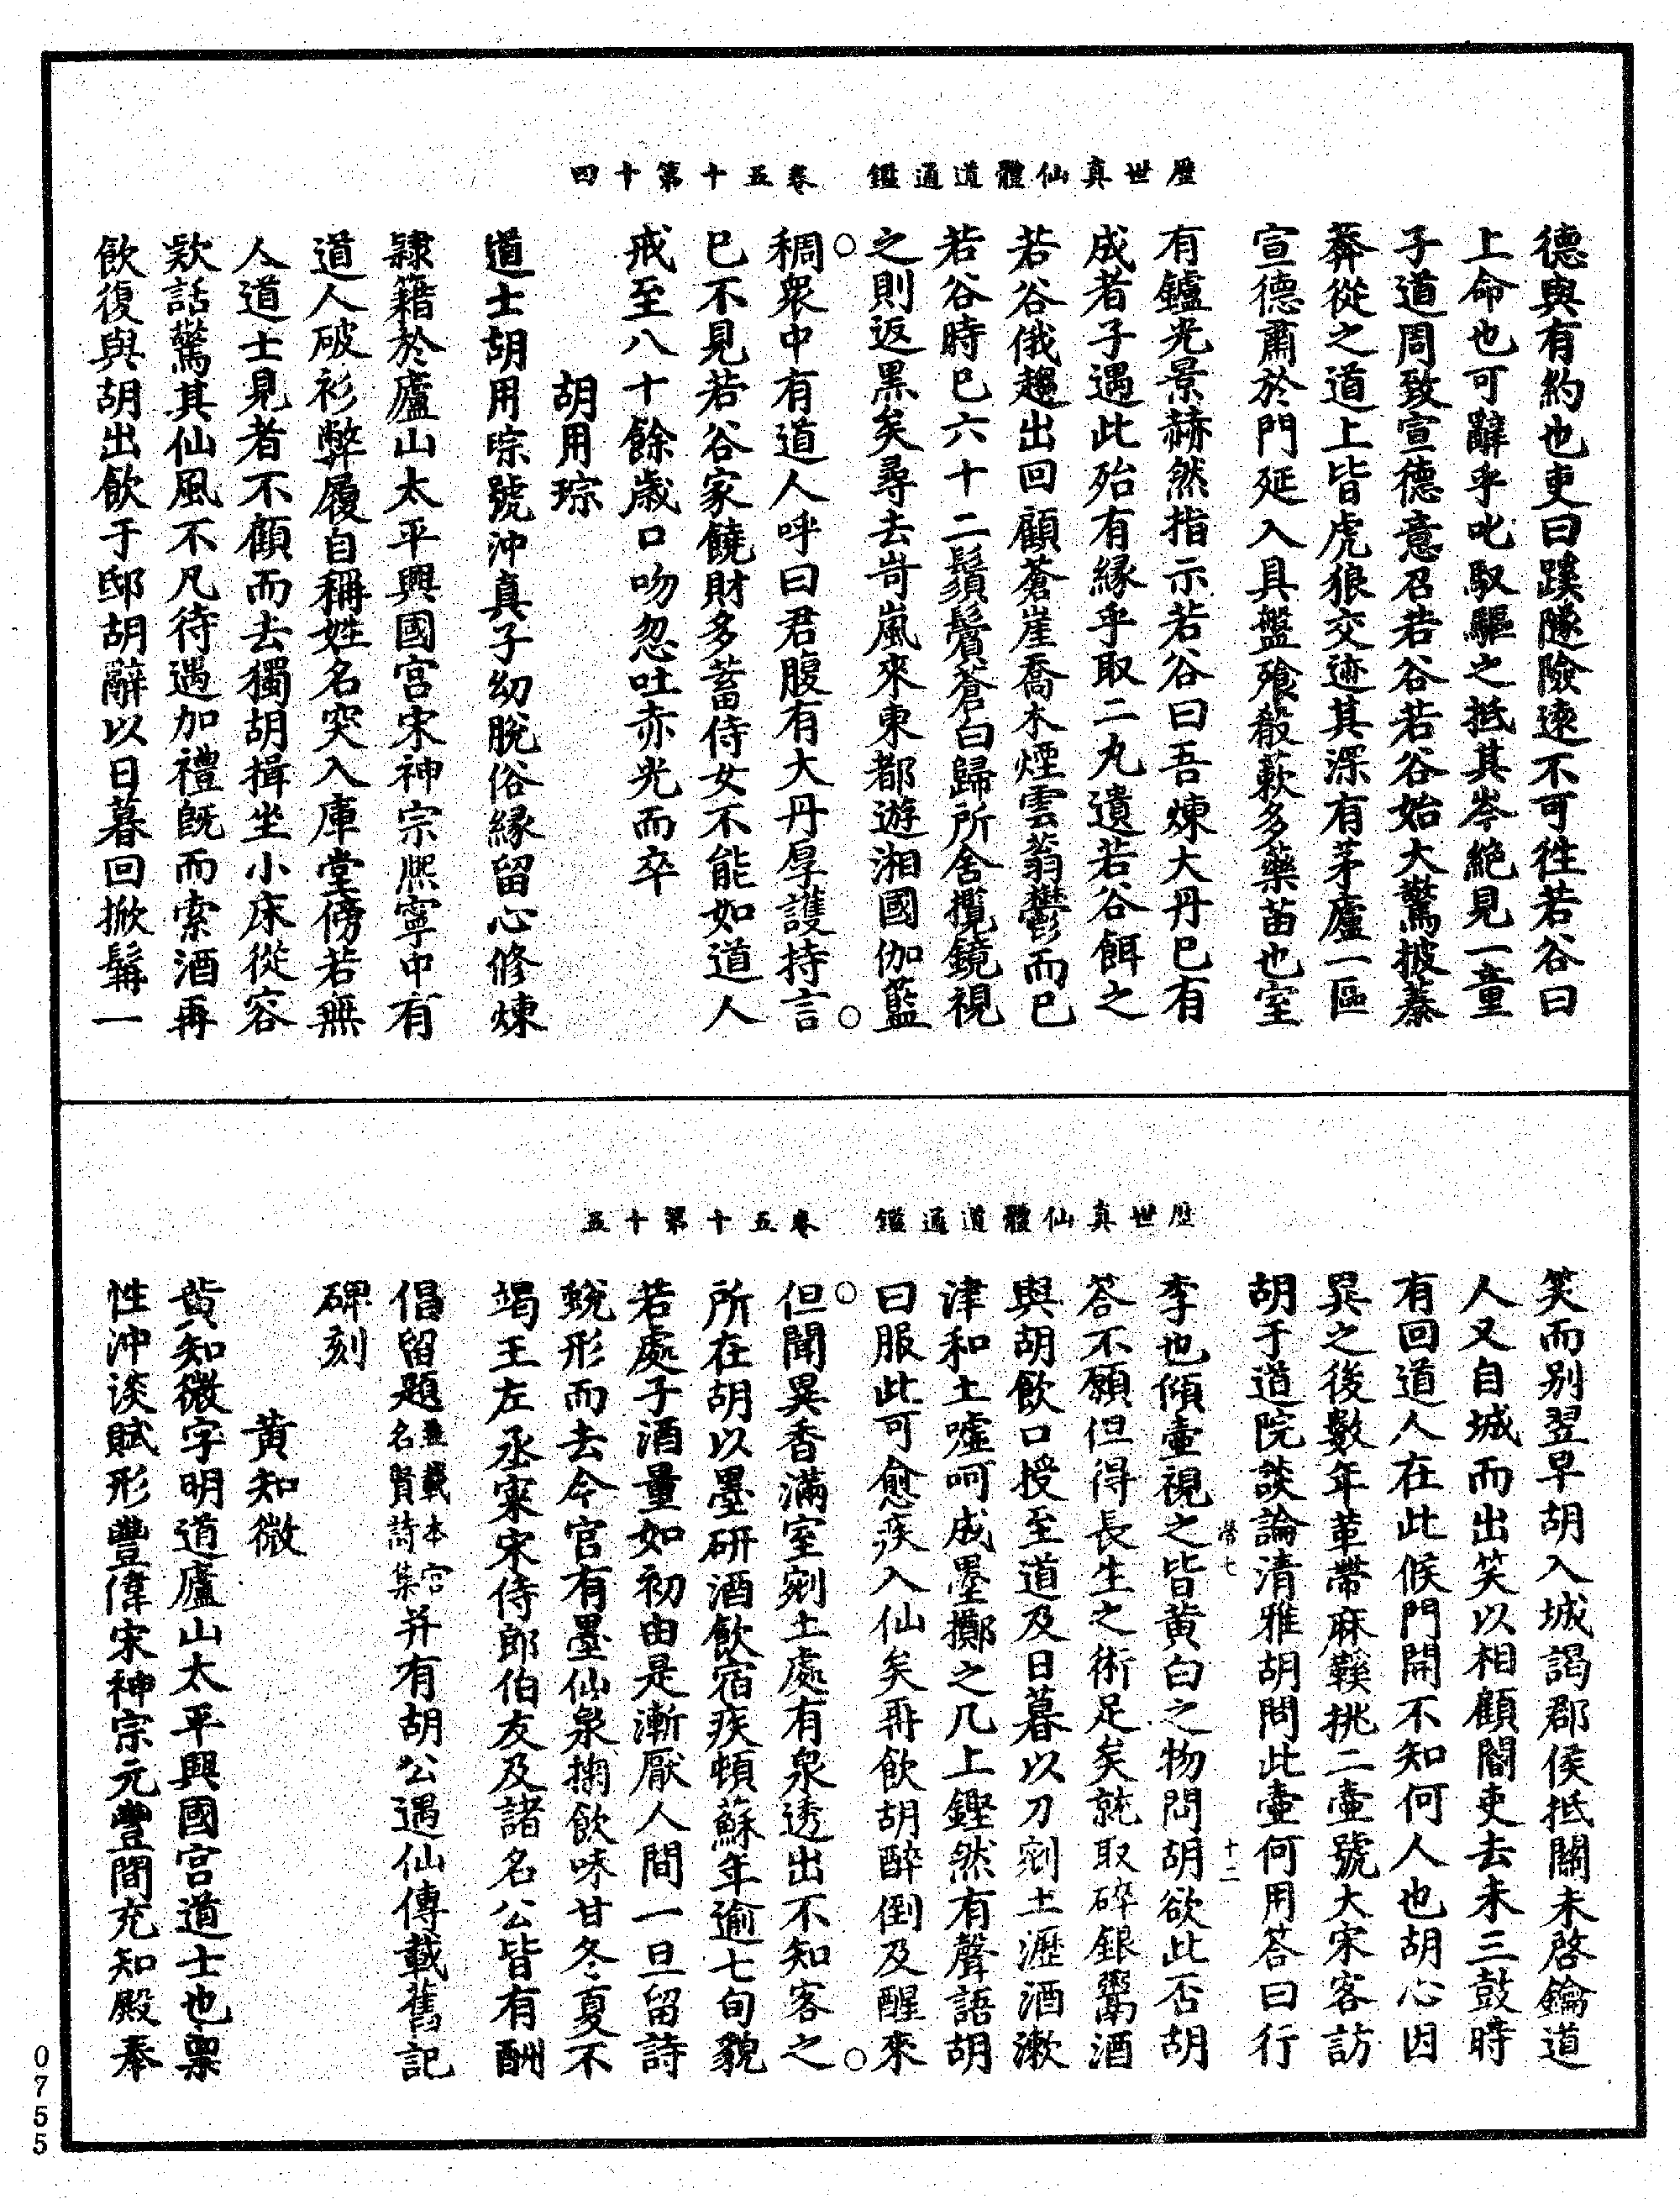 歷世真仙體道通鑑　卷五十第十四
德與有約也吏曰蹊隧險遠不可徃若谷曰
上命也可辭乎叱馭驅之抵其岑絶見一童
子道周致宣德意召若谷若谷始大驚披蓁
莽從之道上皆虎狼交迹其深有茅廬一區
宣德肅於門延入具盤飱殽蔌多藥苗也室
有鑪光景赫然指示若谷曰吾煉大丹巳有
成者子遇此殆有緣乎取二丸遺若谷餌之
若谷俄趨出回顧蒼崖喬木煙雲蓊鬱而巳
若谷時巳六十二鬚鬢蒼白歸所舍攬鏡視
之則返黑矣尋去岢嵐來東都遊湘國伽藍
稠衆中有道人呼曰君腹有大丹厚護持言
巳不見若谷家饒財多蓄侍女不能如道人
戒至八十餘歲口吻忽吐赤光而卒
胡用琮
道士胡用琮號沖真子幼脫俗緣留心修煉
隸籍於廬山太平興國宮宋神宗熈寧中有
道人破衫弊履自稱姓名突入庫堂傍若無
人道士見者不顧而去獨胡揖坐小床從容
欵話驚其仙風不凡待遇加禮旣而索酒再
飲復與胡出飲于邸胡辭以日暮回掀髯一
歷世真仙體道通鑑　卷五十第十五
笑而别翌早胡入城謁郡侯抵關未啓鑰道
人又自城而出笑以相顧閽吏去未三鼓時
有回道人在此候門開不知何人也胡心因
異之後數年草帶麻鞵挑二壷號大宋客訪
胡于道院談論清雅胡問此壷何用答曰行
常七　十二
李也傾壷視之皆黃白之物問胡欲此否胡
答不願但得長生之術足矣就取碎銀鬻酒
與胡飲口授至道及日暮以刀剜土瀝酒漱
津和土噓呵成墨擲之几上鏗然有聲語胡
曰服此可愈疾入仙矣再飲胡醉倒及醒來
但聞異香滿室剜土處有泉透出不知客之
所在胡以墨研酒飲宿疾頓蘇年逾七旬貌
若處子酒量如初由是漸厭人間一旦留詩
蛻形而去今官有墨仙泉掬飲味甘冬夏不
竭王左丞寀宋侍郎伯友及諸名公皆有酬
倡留題並載本宮名賢詩集并有胡公遇仙傳載舊記
碑刻
黃知微
黃知微字明道廬山太平興國宮道士也稟
性沖淡賦形豐偉宋神宗元豐間充知殿奉
0755